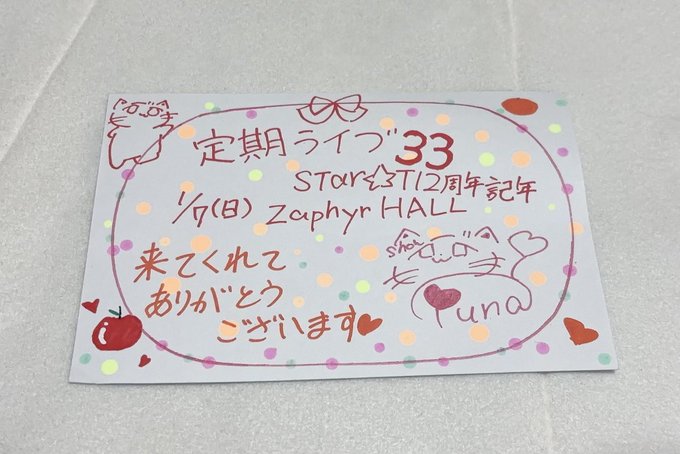 定期ライブ33
STar☆T12周年記年
1/7(日) Zaphyr HALL
来てくれて
ありがとう
ございます
show
Yuna